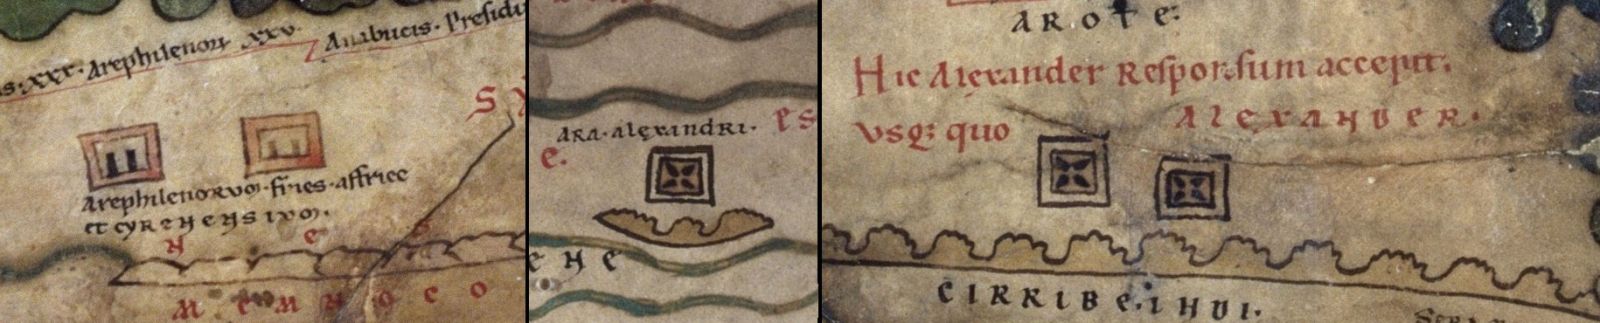 Arephilenorum XXV. Anabucis. Presidiu
Arephilenorum. fines. affrice
et cyrenensium.
N e S
M e M N O C O
ARA. alexandri.
es
e.
e N e
AROTE:
Hic Alexander Responsum accepit.
usq; quo ALEXANDER.
CIRRIBe. INDI.